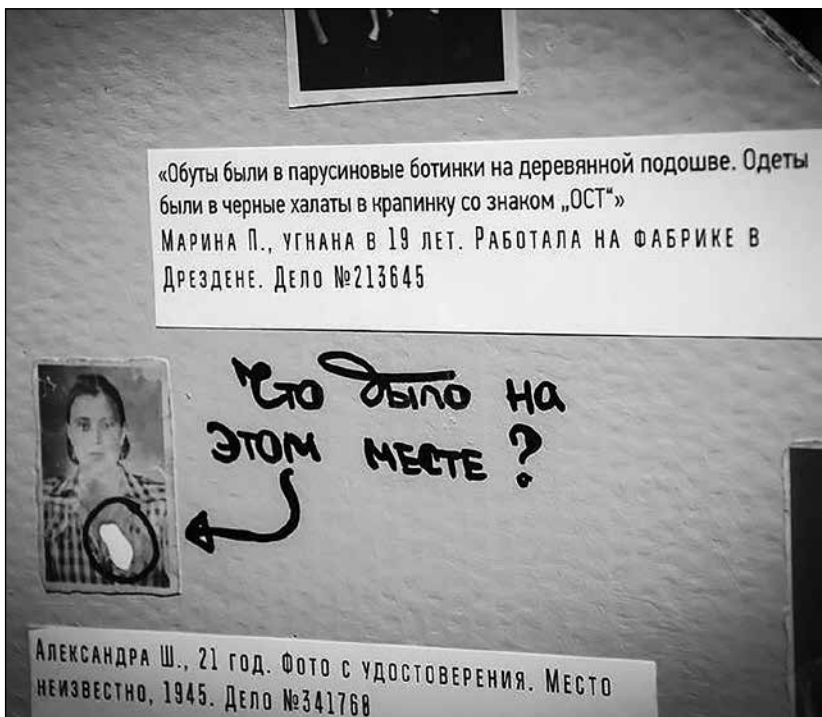 «Обуты были в парусиновые ботинки на деревянной подошве. Одеты
были в черные халаты в крапинку со знаком „ОСТ“»
Марина П., угнана в 19 лет. Работала на фабрике в
Дрездене. Дело №213645
Что было на
этом месте?
Александра Ш., 21 год. Фото с удостоверения. Место
неизвестно, 1945. Дело №341768